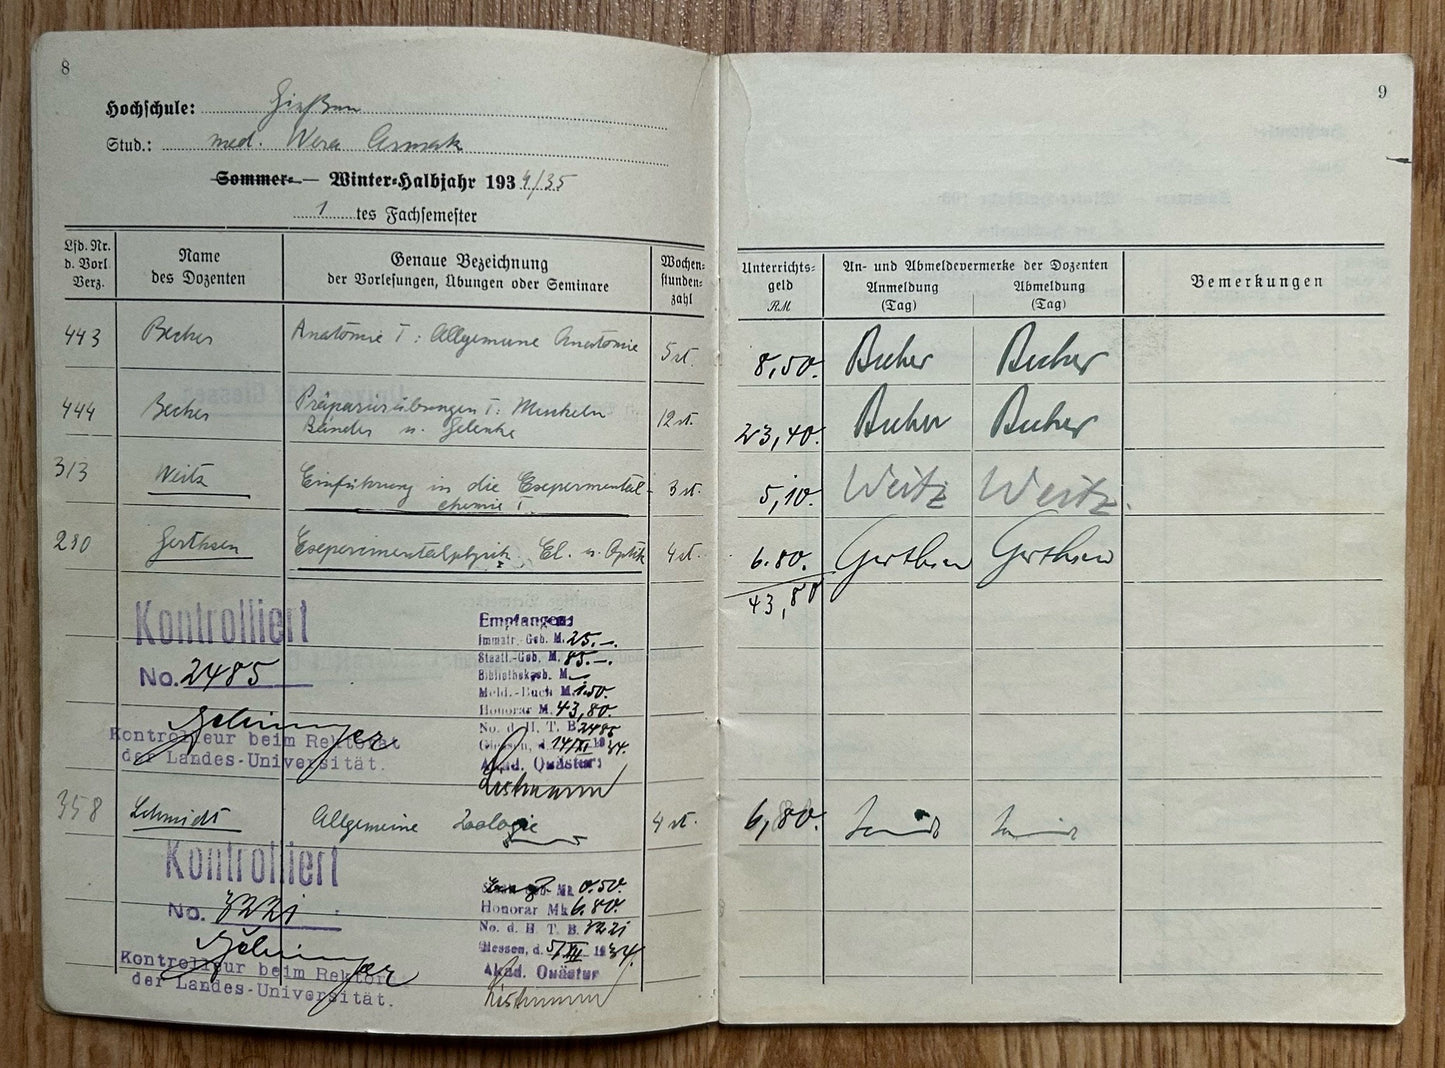 8
Hochschule: Gießen
Stud.: med. Wera
Sommer- — Winter-Halbjahr 1934/35
1 tes Fachsemester
Lfd. Nr. d. Vorl. Verz.
Name des Dozenten
Genaue Bezeichnung der Vorlesungen, Übungen oder Seminare
Wochenstundenzahl
443 Becher Anatomie I: Allgemeine Anatomie 5 st.
444 Becher Präparierübungen I: Muskeln
Bänder u. Gelenke 12 st.
313 Weitz Einführung in die Experimental-
chemie I 3 st.
280 Gerthsen Experimentalphysik El. u. Optik 4 st.
Kontrolliert
No. 2485
Kontrolleur beim Rektorat
der Landes-Universität.
Empfangen:
Immatr.-Geb. M. 25.-.
Staatl.-Geb. M. 85.-.
Bibliothekgeb. M. -
Meld.-Buch M. 1.50.
Honorar M. 43,80.
No. d. H. T. B. 2485
Giessen, d. 14/XI 1934.
Akad. Quästur:
358 Schmidt Allgemeine Zoologie 4 st.
Kontrolliert
No. 3221
Kontrolleur beim Rektorat
der Landes-Universität.
Mk 0.50.
Honorar Mk 6.80.
No. d. H. T. B. 3221
Giessen, d. 5/XII 1934.
Akad. Quästur
9
Unterrichtsgeld RM
An- und Abmeldevermerke der Dozenten
Anmeldung (Tag)
Abmeldung (Tag)
Bemerkungen
8,50. Becher Becher
23,40. Becher Becher
5,10. Weitz Weitz.
6.80. Gerthsen Gerthsen
43,80
6,80.